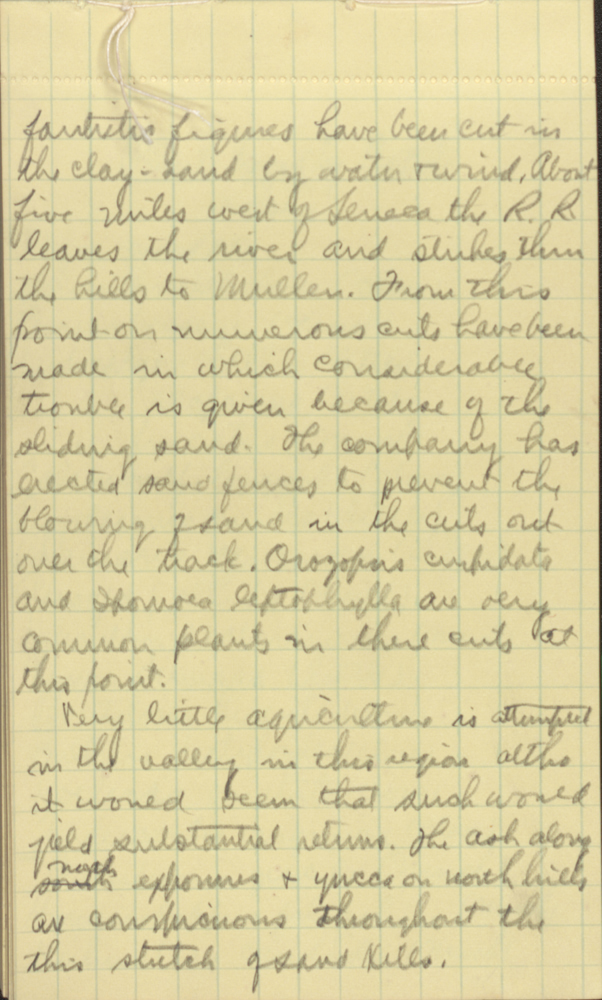 fantistic figures have been cut in
the clay-sand by water & wind. About
five miles west of Seneca the R. R.
leaves the river and strikes thru
the hills to Mullen. From this
point on numerous cuts have been
made in which considerable
trouble is given because of the
sliding sand. The company has
erected sand fences to prevent the
blowing of sand in the cuts out
over the track. Orozopsis cuspidata
and Ipomoea leptophylla are very
common plants in these cuts at
this point.
Very little agriculture is attempted
in the valley in this region altho
it would seem that such would
yield substantial returns. The ash along
north exposures & yucca on north hills
are conspicuous throughout the
this stretch of sand hills.